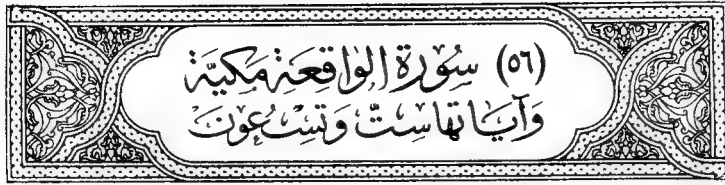 (٥٦) سُورَة الواقِعَة مَكِيَّة
وَآيَاتهَا سِتّ وَتِسْعُونَ